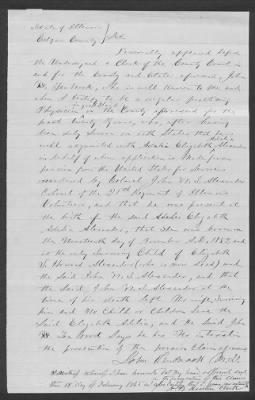 State of Illinois
Edgar County
Personally appeared before
the Undersigned a Clerk of the County Court in
and for the County and State aforesaid, John
who is well known to me and
whom I certify to be a regular practicing
Physician in the County aforesaid for the
past twenty years, who after having
been duly sworn on oath States that he is
well acquainted with Elizabeth Alexander
in behalf of whom application is made for a
pension from the United States for Services
rendered by Colonel John W. S. Alexander
Colonel of the 21st Regiment of Illinois
Volunteers, and that he was present at
the birth of the said Adelia Elizabeth
Alexander, that she was born on
the Nineteenth day of November A.D. 1852, and
is the only surviving Child of Elizabeth
S. Howard Alexander (who is now dead) and
the said John W. S. Alexander, and that
the said John W. S. Alexander at the
time of his death left No wife surviving
him and No Child or Children Save the
said Elizabeth Adelia, and the said John
says he has No interest in
the prosecution of the pension claim aforesaid
John M.D.
my hand
day of February 1865
Clerk